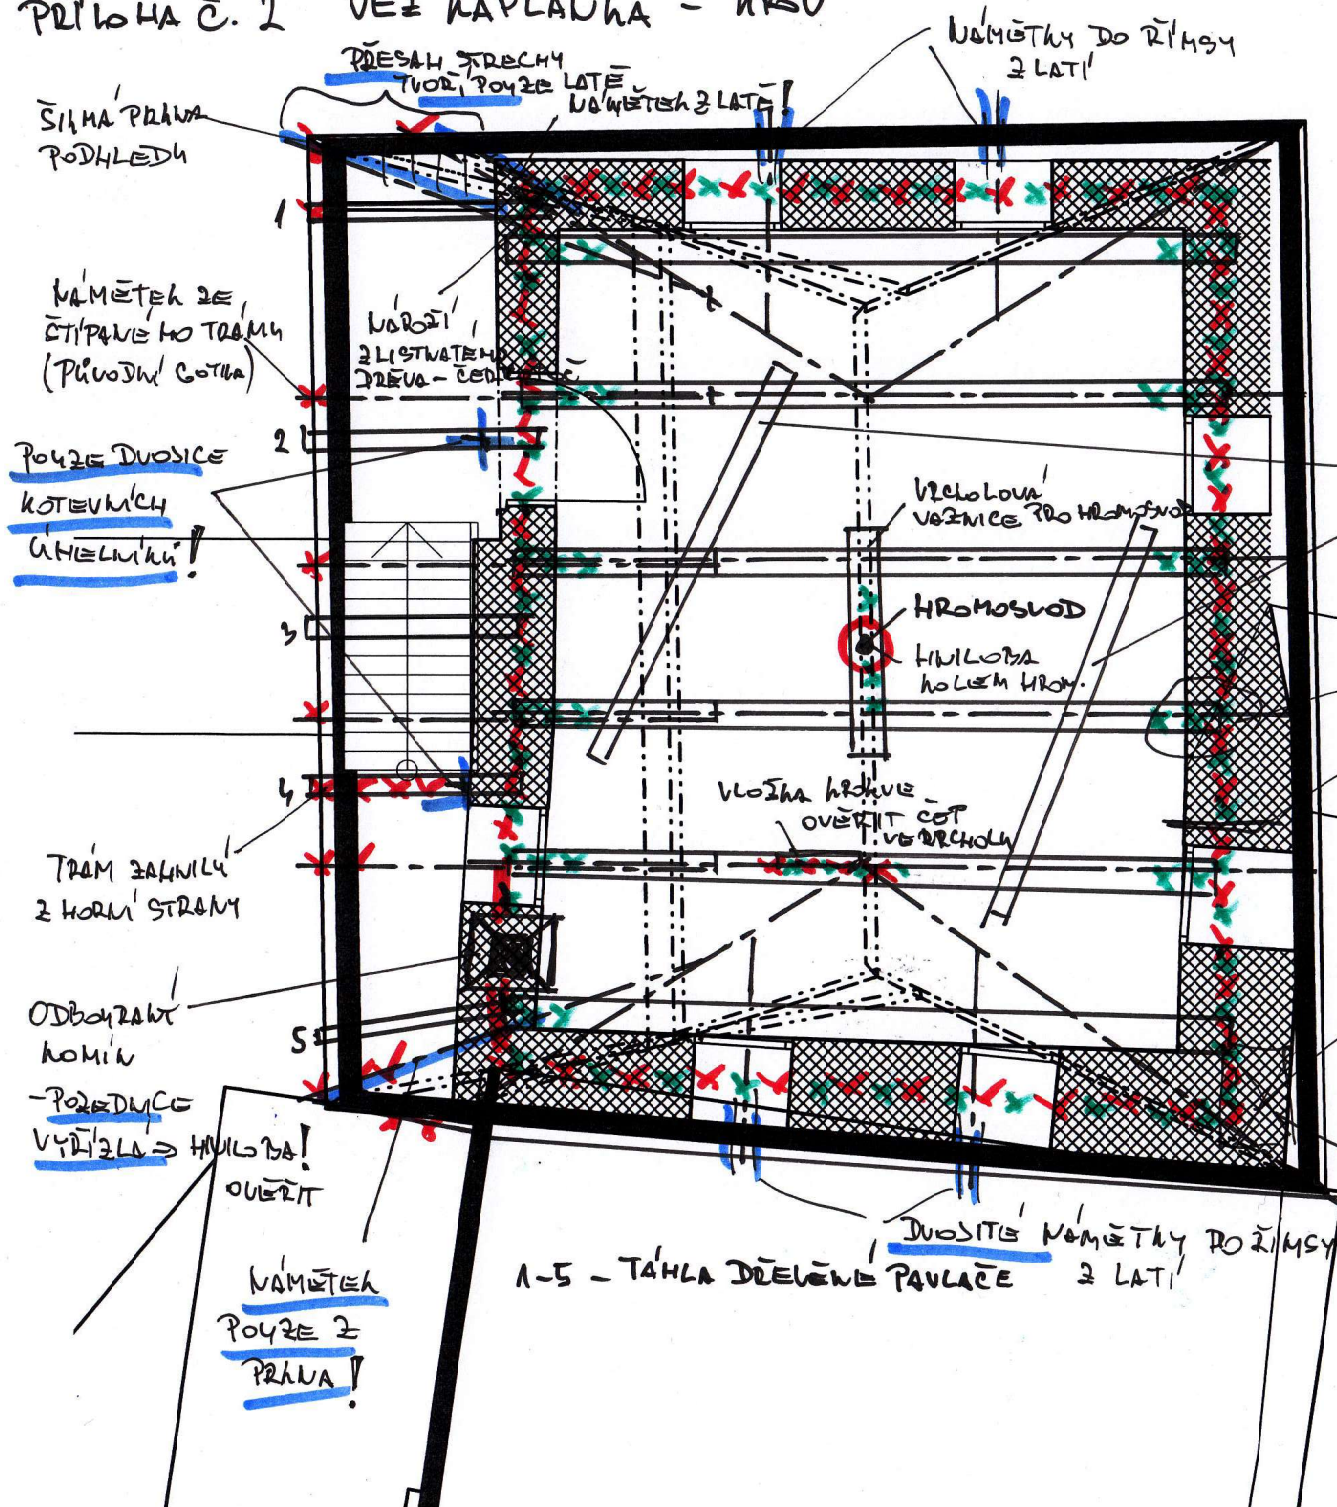 PŘÍLOHA Č. 2 VĚŽ KAPLANKA – KROV
PŘESAH STŘECHY
TVOŘÍ POUZE LATĚ
NÁMĚTEK Z LATĚ!
NÁMĚTKY DO ŘÍMSY
Z LATÍ
ŠIKMÁ PRKNA
PODHLEDU
1
NÁMĚTEK ZE
ŠTÍPANÉHO TRÁMU
(PŮVODNÍ GOTIKA)
NÁROŽÍ
Z LISTNATÉHO
DŘEVA –
2
POUZE DVOJICE
KOTEVNÍCH
ÚHELNÍKŮ!
VRCHOLOVÁ
VAZNICE PRO HROMOSVOD
HROMOSVOD
HNILOBA
KOLEM HROM.
3
4
VLOŽKA KROKVE
OVĚŘIT ČEP
VE VRCHOLU
TRÁM ZAHNILÝ
Z HORNÍ STRANY
ODBOURANÝ
KOMÍN
– POZEDNICE
VYŘÍZLÁ ⇒ HNILOBA!
OVĚŘIT
5
DVOJITÉ NÁMĚTKY DO ŘÍMSY
Z LATÍ
1–5 – TÁHLA DŘEVĚNÉ PAVLAČE
NÁMĚTEK
POUZE Z
PRKNA!